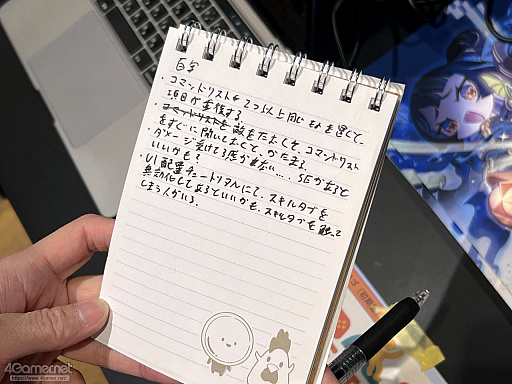 ・コマンドリストを2つ以上同じものを置くと、
項目が重複する。
・コマンドリストを敵をたおしを、コマンドリスト
をすぐに開いとくと、かたまる。
・ダメージ受けてる感が無い…。SEがあると
いいかも?
・UI配置チュートリアルにて、スキルタブを
無効化してあるといいかも。スキルタブを触って
しまう人がいる。
4Gamer.net
https://www.4gamer.net/